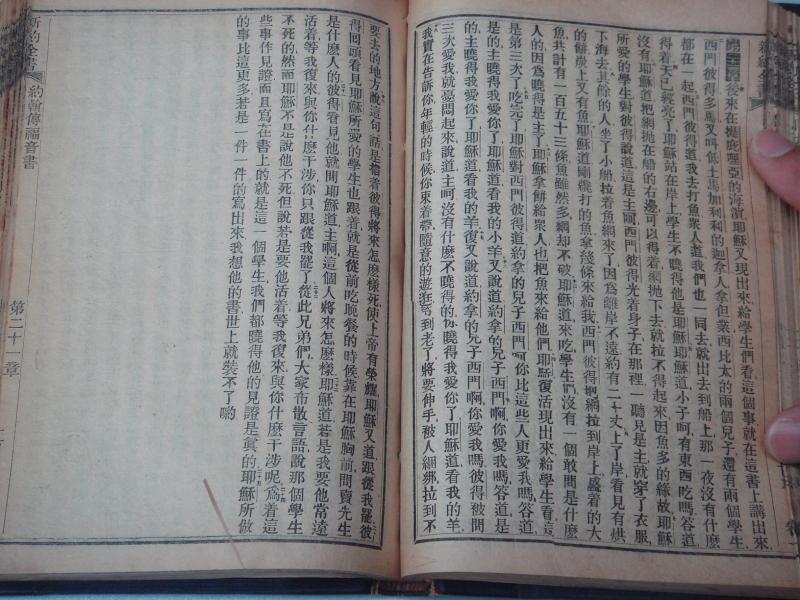 後來在提庇哩亞的海濱耶穌又現出來給學生們看這個事就在這書上講出來
西門彼得多馬又叫低土馬加利利的迦拿人拿但業西比太的兩個兒子還有兩個學生
都在一起西門彼得道我去打魚衆人道我們也一同去就出去到船上那一夜沒有什麽
得着天已經亮了耶穌站在岸上學生不曉得他是耶穌耶穌道小子呵有東西吃嗎答道
沒有耶穌道把網抛在船的右邊可以得着網抛下去就拉不得起來因魚多的緣故耶穌
所愛的學生對彼得說道這是主西門彼得光着身子在那裡一聽見是主就穿了衣服
下海去其餘的人坐了小船拉着魚網來了因爲離岸不遠約有二十丈上了岸看見有烘
魚共計有一百五十三條魚雖然多網却不破耶穌道來吃學生們沒有一個敢問是什麽
人的因爲曉得是主了耶穌拿餅給衆人也把魚來給他們耶穌復活現出來給學生看這
是第三次了吃完了耶穌對西門彼得道約拿的兒子西門呵你比這些人更愛我嗎答道
是的主曉得我愛你了耶穌道看我的小羊又說道約拿的兒子西門啊你愛我嗎答道是
的主曉得我愛你了耶穌道看我的羊復又說道約拿的兒子西門啊你愛我嗎彼得被問
三次愛我就憂悶起來說道主呵沒有什麽不曉得的你曉得我愛你了耶穌道看我的羊
我實在告訴你年輕的時候你束着帶隨意的遊狂等到老了將要伸手被人綑綁拉到不
要去的地方說這句話是指着彼得將來怎麽樣死使上帝有榮耀耶穌又道跟從我罷彼
得回頭看見耶穌所愛的學生也跟着就是從前吃晚餐的時候靠在耶穌胸前問賣先生
是什麽人的彼得看見他就問耶穌道主啊這個人將來怎麽樣耶穌道若是我要他常遠
活着等我復來與你什麽干涉你只跟從我罷了從此兄弟們大家布散言語說那個學生
不死的然而耶穌不是說他不死但說若是要他活着等我復來與你什麽干涉呢爲着這
些事作見證而且寫在書上的就是這一個學生我們都曉得他的見證是眞的耶穌所做
的事比這更多若是一件一件的寫出來我想他的書世上就裝不了喲
新約全書
約翰傳福音書
第二十一章